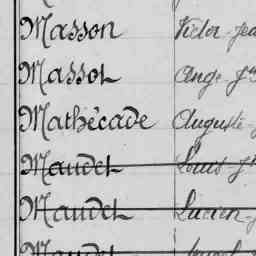 Masson Victor Jea
Massot Ange-J
Mathécade Auguste-
Maudet Louis J
Maudet Lucien-
Maudet